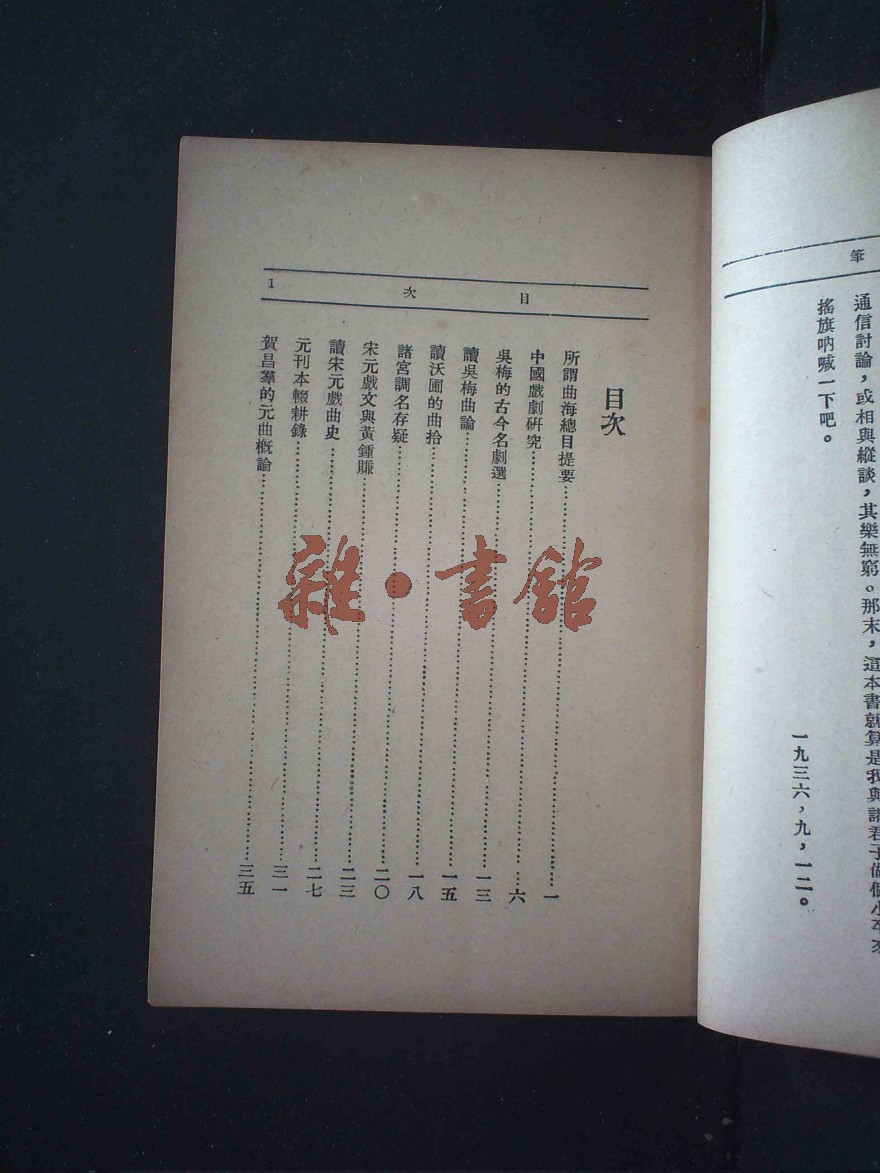 筆
通信討論，或相與縱談，其樂無窮。那末，這本書就算是我與諸君子做個小卒來
搖旗吶喊一下吧。
一九三六，九，一二。
目次
1
目次
所謂曲海總目提要……一
中國戲劇研究……六
吳梅的古今名劇選……一三
讀吳梅曲論……一五
讀沃圃的曲拾……一八
諸宮調名存疑……二〇
宋元戲文與黃鍾賺……二三
讀宋元戲曲史……二七
元刊本輟耕錄……三一
賀昌羣的元曲概論……三五
雜·書館